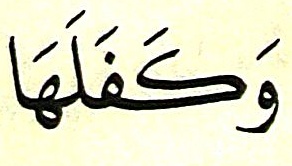 وَكَفَلَهَا